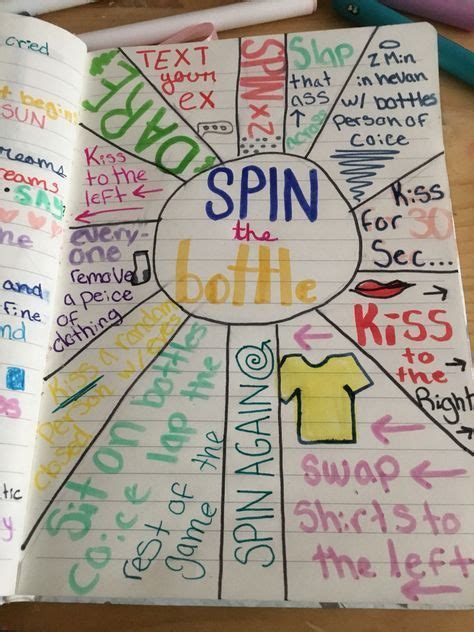 cried
t begin
SUN
reams
reams
SAY
he
and
fine
nd
tic
y
SPIN
the
bottle
DARE
TEXT
your
ex
SPIN
2x
Slap
that
ass
across
2 Min
in hevan
w/ bottles
person of
coice
Kiss
for 30
Sec...
Kiss
to the
Right
swap
Shirts to
the left
SPIN AGAIN
Sit on bottles
coice lap the
rest of the
game
Kiss a random
person w/ eyes
closed
every-
one
remove
a peice
of
clothing
Kiss
to the
left